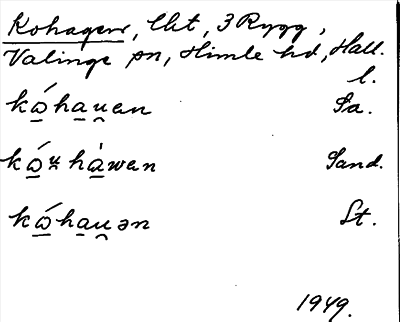 Kohagen, lht, 3 Rygg,
Valinge sn, Himle hd, Hall.
l.
kώ̲ha̲u̯en Sa.
kώ̲ʷhà̲wen Sand.
kώ̲ha̲u̯ən St.
1949.